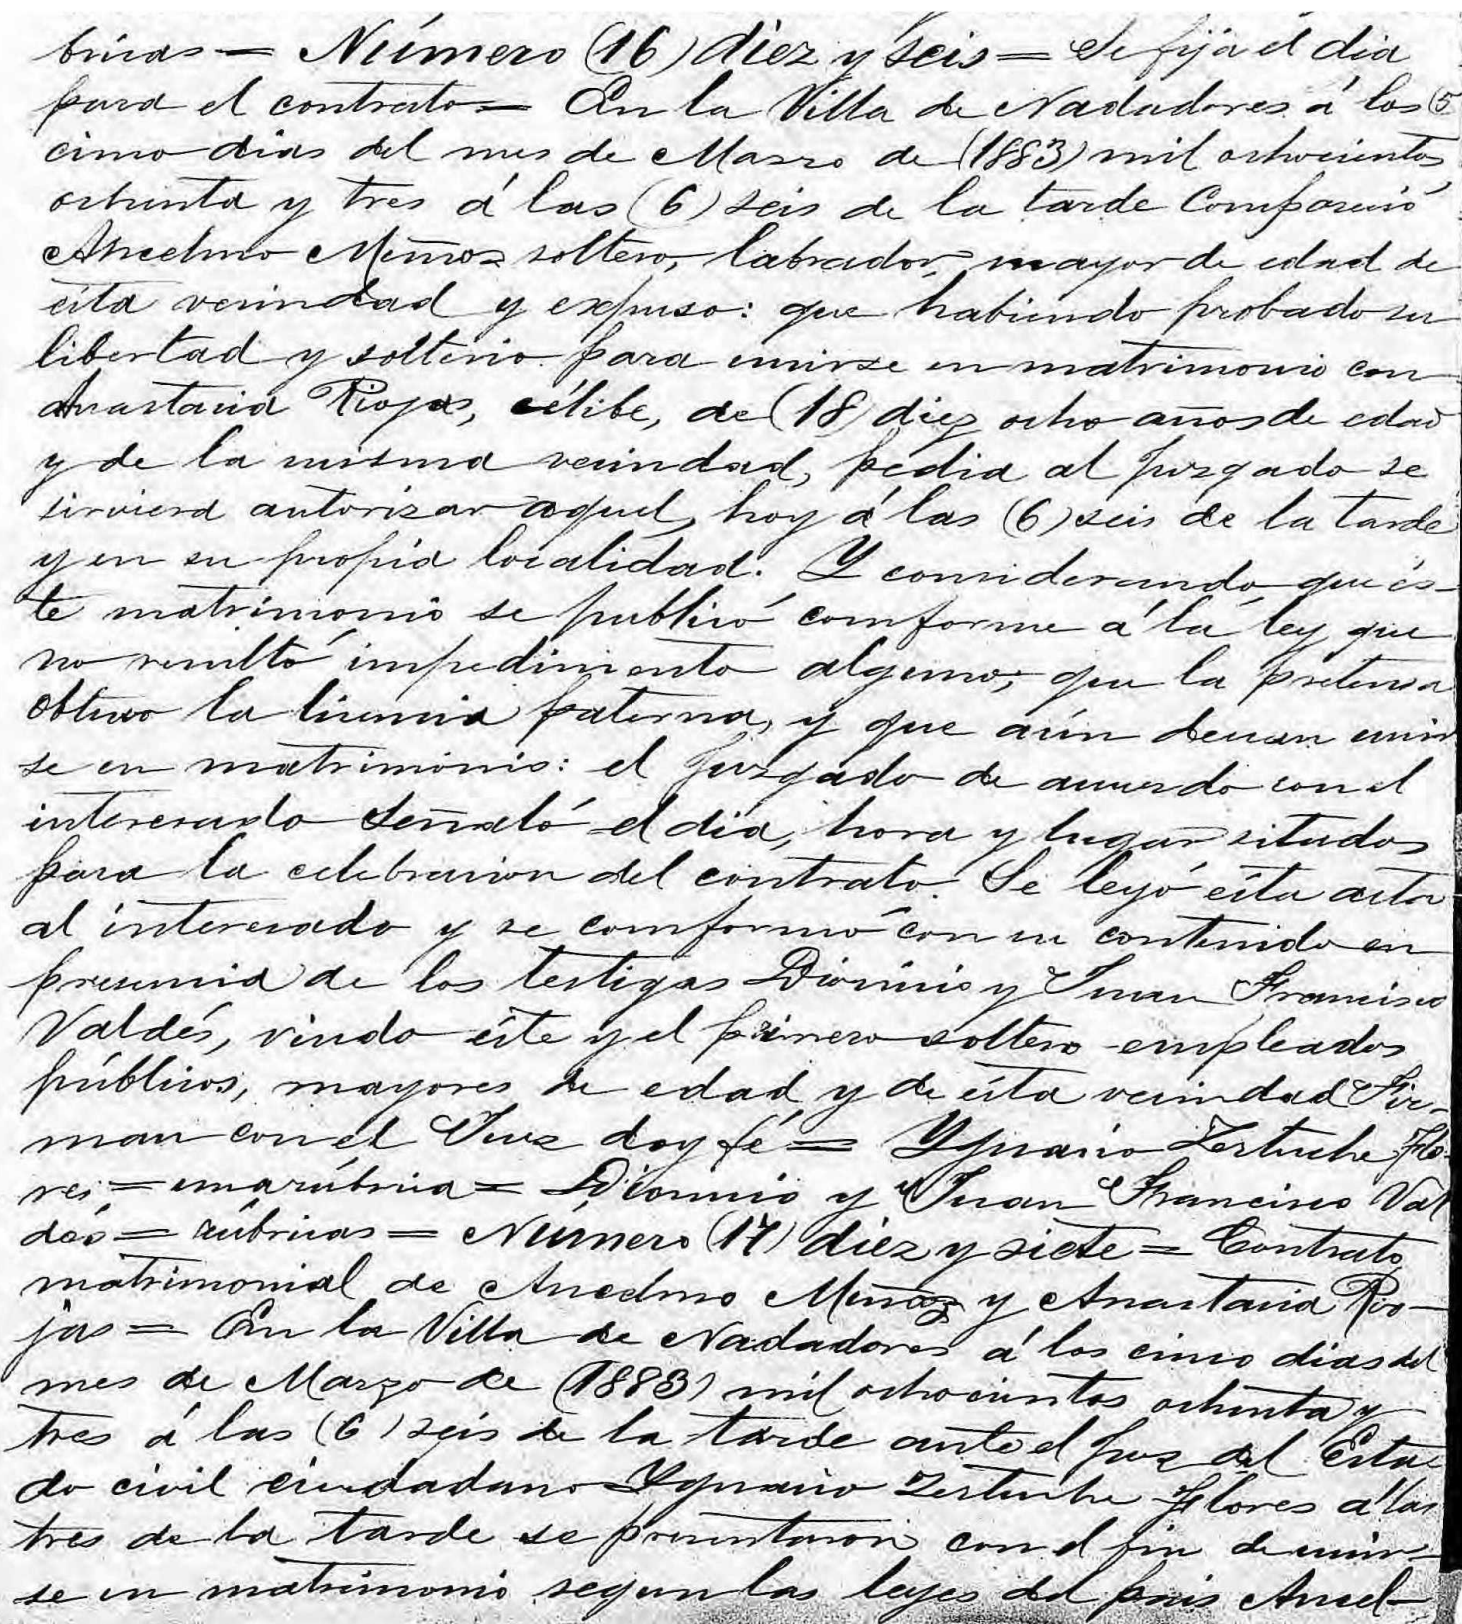 bricas = Número (16) diez y seis = Se fija el dia
para el contrato = En la Villa de Nadadores á los (5
cinco dias del mes de Marzo de (1883) mil ochocientos
ochenta y tres á las (6) seis de la tarde Compareció
Ancelmo Muñoz soltero, labrador, mayor de edad de
ésta vecindad y expuso: que habiendo probado su
libertad y solterio para unirse en matrimonio con
Anastacia Riojas, célibe, de (18) diez ocho años de edad
y de la misma vecindad, pedia al juzgado se
sirviera autorizar aquel, hoy á las (6) seis de la tarde
y en su propia localidad. Y considerando que és-
te matrimonio se publicó comforme á la ley que
no resultó impedimento alguno; que la pretensa
obtuvo la licencia paterna, y que aún decean unir
se en matrimonio: el juzgado de acuerdo con el
interesado señaló el dia, hora y lugar sitados
para la celebracion del contrato. Se leyó ésta acta
al interesado y se comformó con su contenido en
presencia de los testigos Dionicio y Juan Francisco
Valdés, viudo éste y el primero soltero empleados
públicos, mayores de edad y de ésta vecindad Fir-
man con el Juez doy fé = Ygnacio Zertuche Flo-
res = una rúbrica = Dionicio y Juan Francisco Val
dés = rúbricas = Número (17) diez y siete = Contrato
matrimonial de Ancelmo Muñoz y Anastacia Rio-
jas = En la Villa de Nadadores á los cinco dias del
mes de Marzo de (1883) mil ochocientos ochenta y
tres á las (6) seis de la tarde ante el juez del Esta-
do civil ciudadano Ygnacio Zertuche Flores á las
tres de la tarde se presentaron con el fin de unir-
se en matrimonio segun las leyes del pais Ancel-